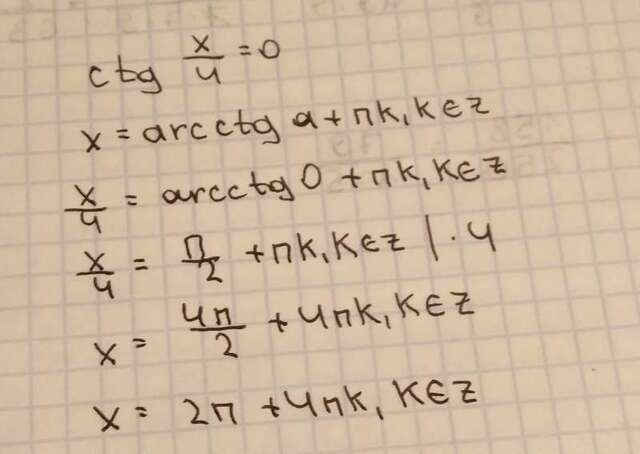 ctg x/4 = 0
x = arcctg a + πk, k ∈ z
x/4 = arcctg 0 + πk, k ∈ z
x/4 = π/2 + πk, k ∈ z | · 4
x = 4π/2 + 4πk, k ∈ z
x = 2π + 4πk, k ∈ z